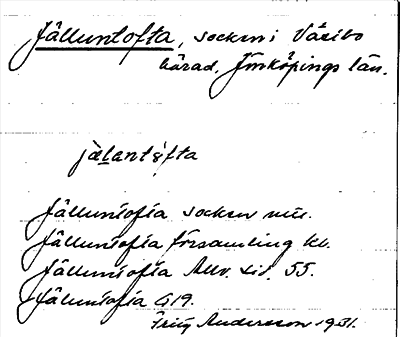 Jälluntofta, socken i Västbo
härad, Jönköpings län.
jälantófta
Jälluntofta socken
Jälluntofta församling
Jälluntofta Allv. 55.
Jälluntofta G19.
Andersson 1931.